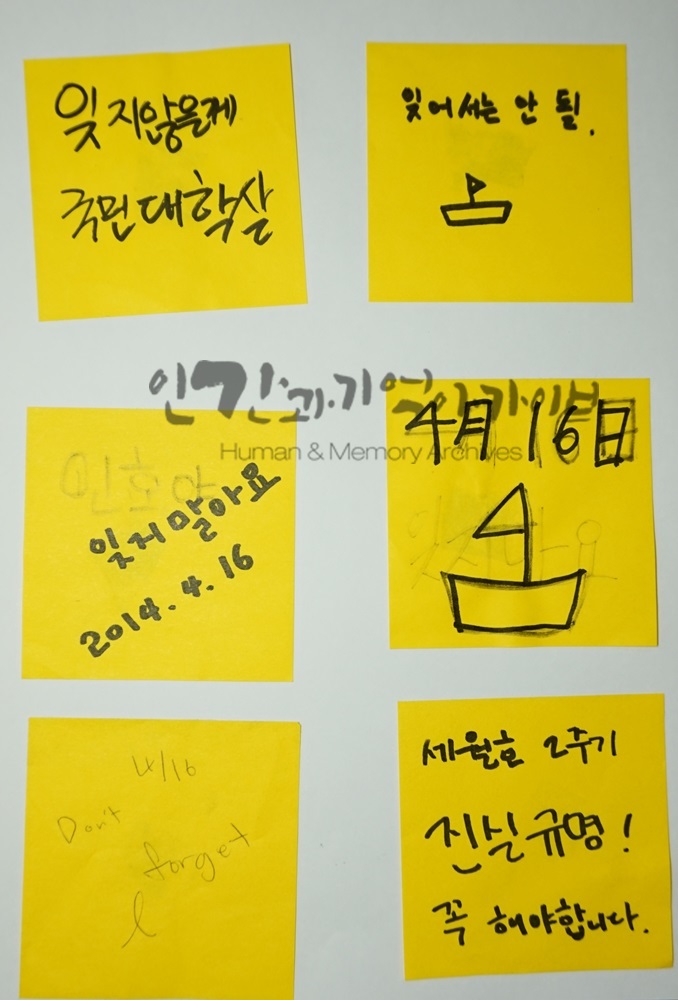 잊지않을게
국민대학살
잊어서는 안 될.
인간과기억아카이브
Human & Memory Archives
잊지말아요
2014.4.16
4月16日
4/16
Don't
forget
세월호 2주기
진실규명!
꼭 해야합니다.